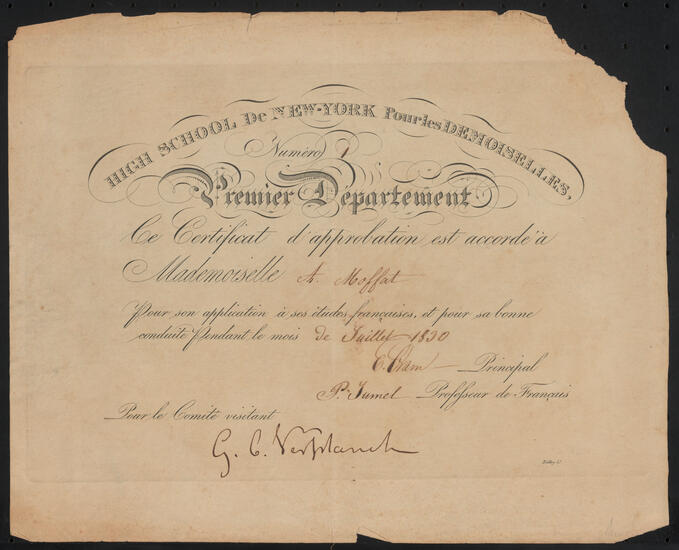 HIGH SCHOOL De NEW-YORK Pour les DEMOISELLES,
Numéro 1
Premier Département
Ce Certificat d'approbation est accordé à
Mademoiselle A. Moffat
Pour son application à ses études françaises, et pour sa bonne
conduite Pendant le mois de Juillet 1830
Principal
P. Jumel Professeur de Français
Pour le Comité visitant
G. C. Verplanck